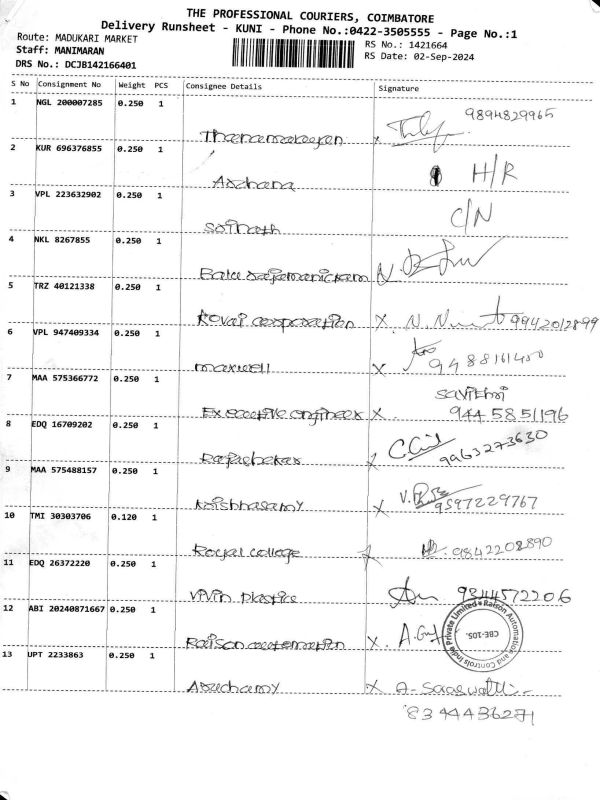 THE PROFESSIONAL COURIERS, COIMBATORE
Delivery Runsheet - KUNI - Phone No.:0422-3505555 - Page No.:1
Route: MADUKARI MARKET
RS No.: 1421664
Staff: MANIMARAN
RS Date: 02-Sep-2024
DRS No.: DCJB142166401
S No Consignment No Weight PCS Consignee Details Signature
1 NGL 200007285 0.250 1
9894829965
2 KUR 696376855 0.250 1
Archana H/R
3 VPL 223632902 0.250 1
C/N
Sofinath
4 NKL 8267855 0.250 1
Balu rajamanickam
5 TRZ 40121338 0.250 1
Kovai corporation X. 9942012899
6 VPL 947409334 0.250 1
maxwell X 9488161400
7 MAA 575366772 0.250 1
Savithri
Executive engineer X. 9445851196
8 EDQ 16709202 0.250 1
Rajasekar 9963273630
9 MAA 575488157 0.250 1
Krishnasamy X 9597229767
10 TMI 30303706 0.120 1
Royal college 9842208890
11 EDQ 26372220 0.250 1
Vivin plastic 9344572206
12 ABI 20240871667 0.250 1
Raison automation X.
Raison Automation and Controls India Private Limited
CBE-105.
13 UPT 2233863 0.250 1
Aruchamy X A. Saraswathi
8344436271